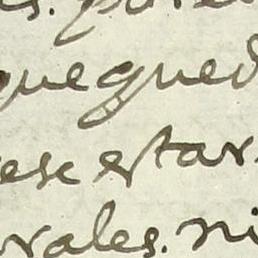 que qued
ese estar
rales. ni